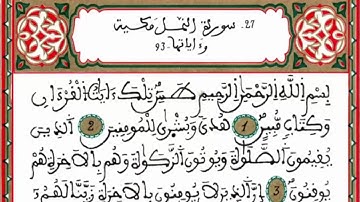 27. سورة النمل مكية
وءاياتها-93
بِسْمِ اللَّهِ الرَّحْمَٰنِ الرَّحِيمِ طسٓ تِلْكَ ءَايَٰتُ الْقُرْءَانِ
وَكِتَابٍ مُّبِينٍ 1 هُدًى وَبُشْرَىٰ لِلْمُومِنِينَ 2 الذِينَ
يُقِيمُونَ الصَّلَوٰةَ وَيُوتُونَ الزَّكَوٰةَ وَهُم بِالَاخِرَةِ هُمْ
يُوقِنُونَ 3 إِنَّ الذِينَ لَا يُومِنُونَ بِالَاخِرَةِ زَيَّنَّا لَهُمُ